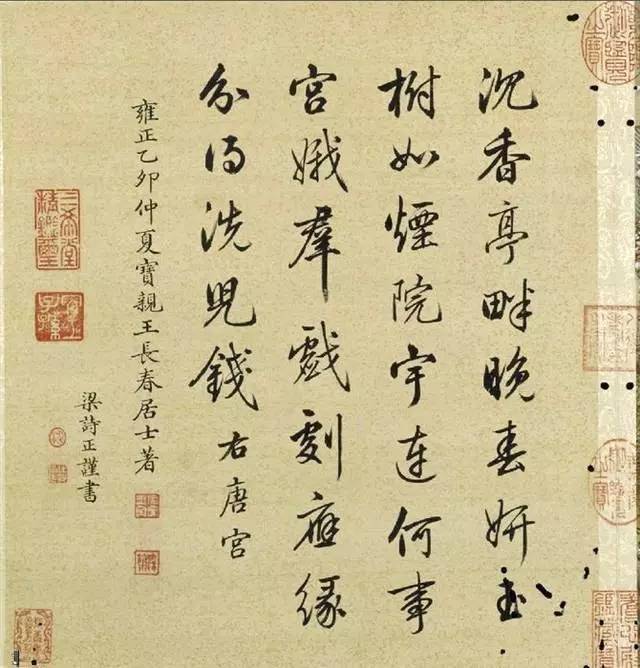 沈香亭畔晚春妍玉
樹如煙院宇連何事
宮娥羣戲劇應緣
分得洗兒錢右唐宮
雍正乙卯仲夏寶親王長春居士著
梁詩正謹書
三希堂精鑑璽
宜子孫